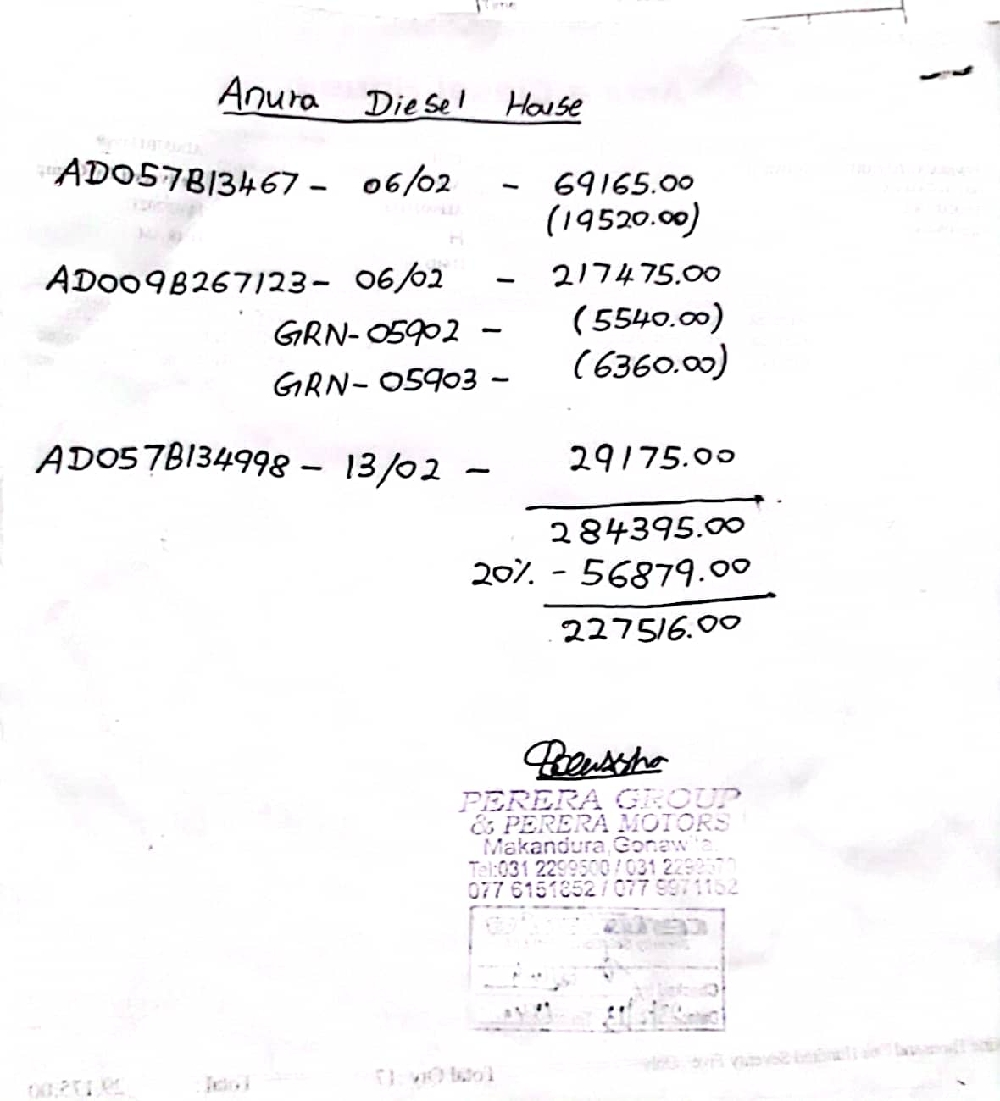 Time
Anura Diesel House
AD057B13467 - 06/02 - 69165.00
(19520.00)
AD009B267123 - 06/02 - 217475.00
GRN-05902 - (5540.00)
GRN-05903 - (6360.00)
AD057B134998 - 13/02 - 29175.00
284395.00
20% - 56879.00
227516.00
PERERA GROUP
& PERERA MOTORS
Makandura,
Tel:031 2299500 / 031
077 6151852 / 077 9971152
Total Qty :17 Total : 29,175.00